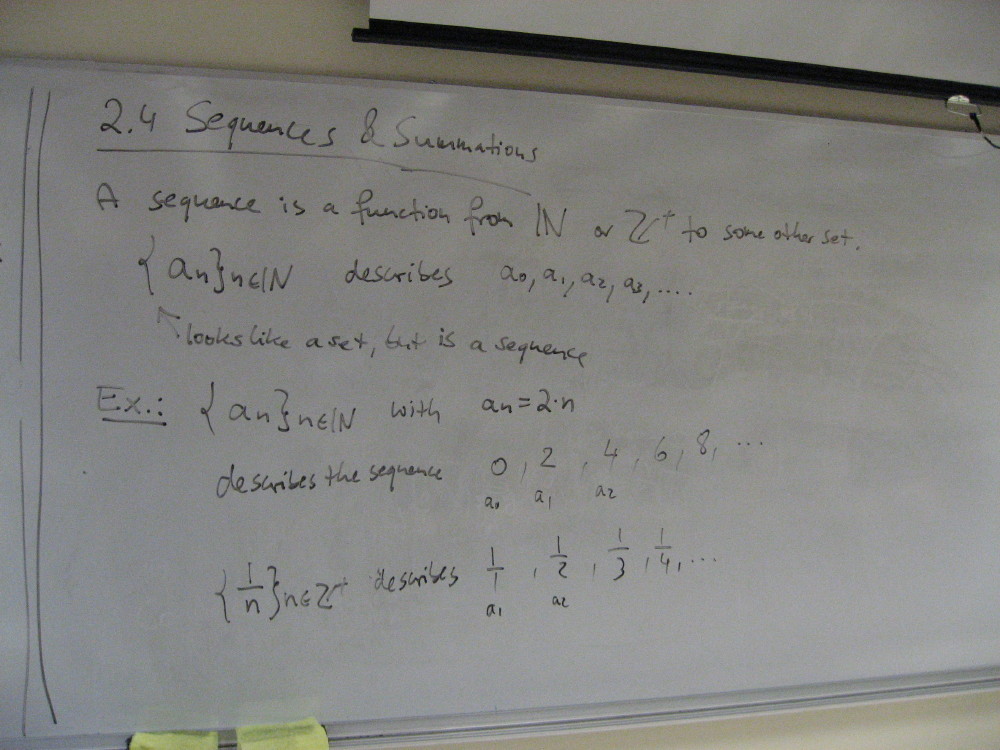 2.4 Sequences & Summations
A sequence is a function from ℕ or ℤ⁺ to some other set.
{aₙ}ₙ∈ℕ describes a₀, a₁, a₂, a₃, ....
↖ looks like a set, but is a sequence
Ex.: {aₙ}ₙ∈ℕ with aₙ = 2·n
describes the sequence 0, 2, 4, 6, 8, ...
a₀ a₁ a₂
{1/n}ₙ∈ℤ⁺ describes 1/1, 1/2, 1/3, 1/4, ...
a₁ a₂